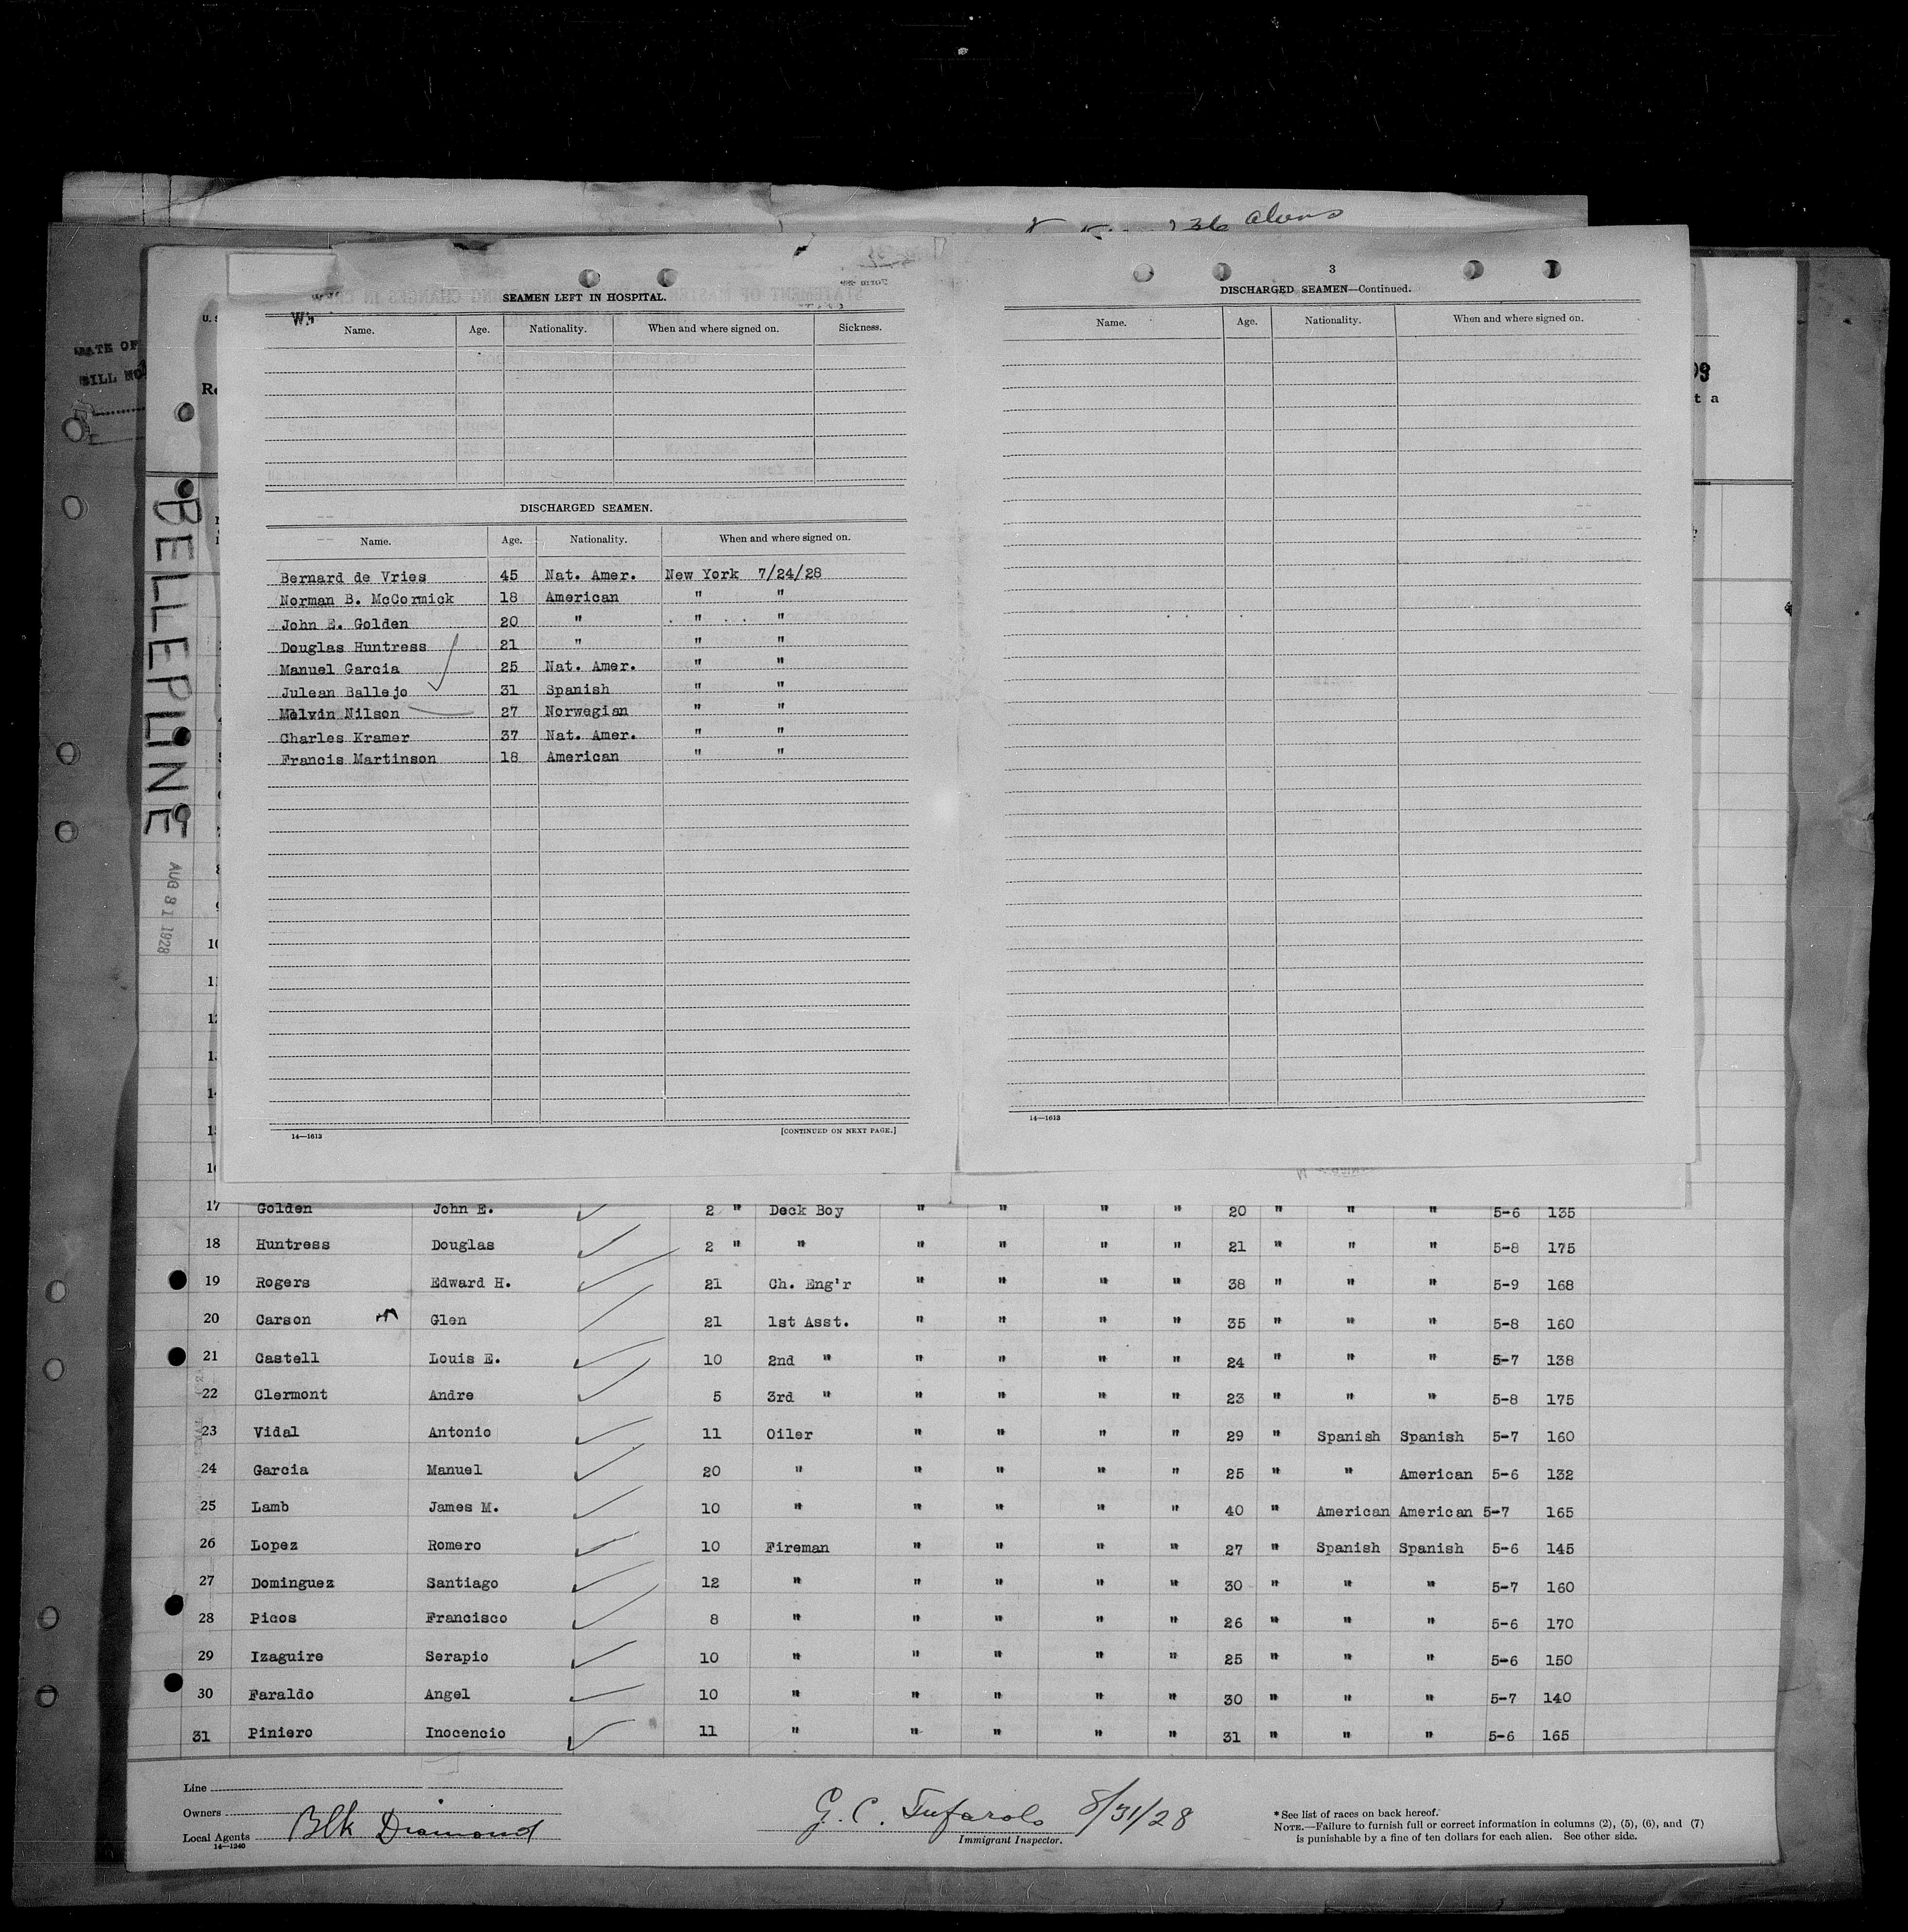 alons
3
SEAMEN LEFT IN HOSPITAL.
Name. Age. Nationality. When and where signed on. Sickness.
DISCHARGED SEAMEN.
Name. Age. Nationality. When and where signed on.
Bernard de Vries 45 Nat. Amer. New York 7/24/28
Norman B. McCormick 18 American " "
John E. Golden 20 " " "
Douglas Huntress 21 " " "
Manuel Garcia 25 Nat. Amer. " "
Julean Ballejo 31 Spanish " "
Melvin Nilson 27 Norwegian " "
Charles Kramer 37 Nat. Amer. " "
Francis Martinson 18 American " "
14—1613 [CONTINUED ON NEXT PAGE.]
DISCHARGED SEAMEN—Continued.
Name. Age. Nationality. When and where signed on.
14—1613
DATE OF
BILL NO
BELLEPLINE
AUG 31 1928
17 Golden John E. 2 " Deck Boy " " " " 20 " " " 5-6 135
18 Huntress Douglas 2 " " " " " " 21 " " " 5-8 175
19 Rogers Edward H. 21 Ch. Eng'r " " " " 38 " " " 5-9 168
20 Carson Glen 21 1st Asst. " " " " 35 " " " 5-8 160
21 Castell Louis E. 10 2nd " " " " " 24 " " " 5-7 138
22 Clermont Andre 5 3rd " " " " " 23 " " " 5-8 175
23 Vidal Antonio 11 Oiler " " " " 29 " Spanish Spanish 5-7 160
24 Garcia Manuel 20 " " " " " 25 " " American 5-6 132
25 Lamb James M. 10 " " " " " 40 " American American 5-7 165
26 Lopez Romero 10 Fireman " " " " 27 " Spanish Spanish 5-6 145
27 Dominguez Santiago 12 " " " " " 30 " " " 5-7 160
28 Picos Francisco 8 " " " " " 26 " " " 5-6 170
29 Izaguire Serapio 10 " " " " " 25 " " " 5-6 150
30 Faraldo Angel 10 " " " " " 30 " " " 5-7 140
31 Piniero Inocencio 11 " " " " " 31 " " " 5-6 165
Line
Owners
Local Agents Blk Diamond
14—1240
G. C. Tufarolo 8/31/28
Immigrant Inspector.
* See list of races on back hereof.
NOTE.—Failure to furnish full or correct information in columns (2), (5), (6), and (7)
is punishable by a fine of ten dollars for each alien. See other side.